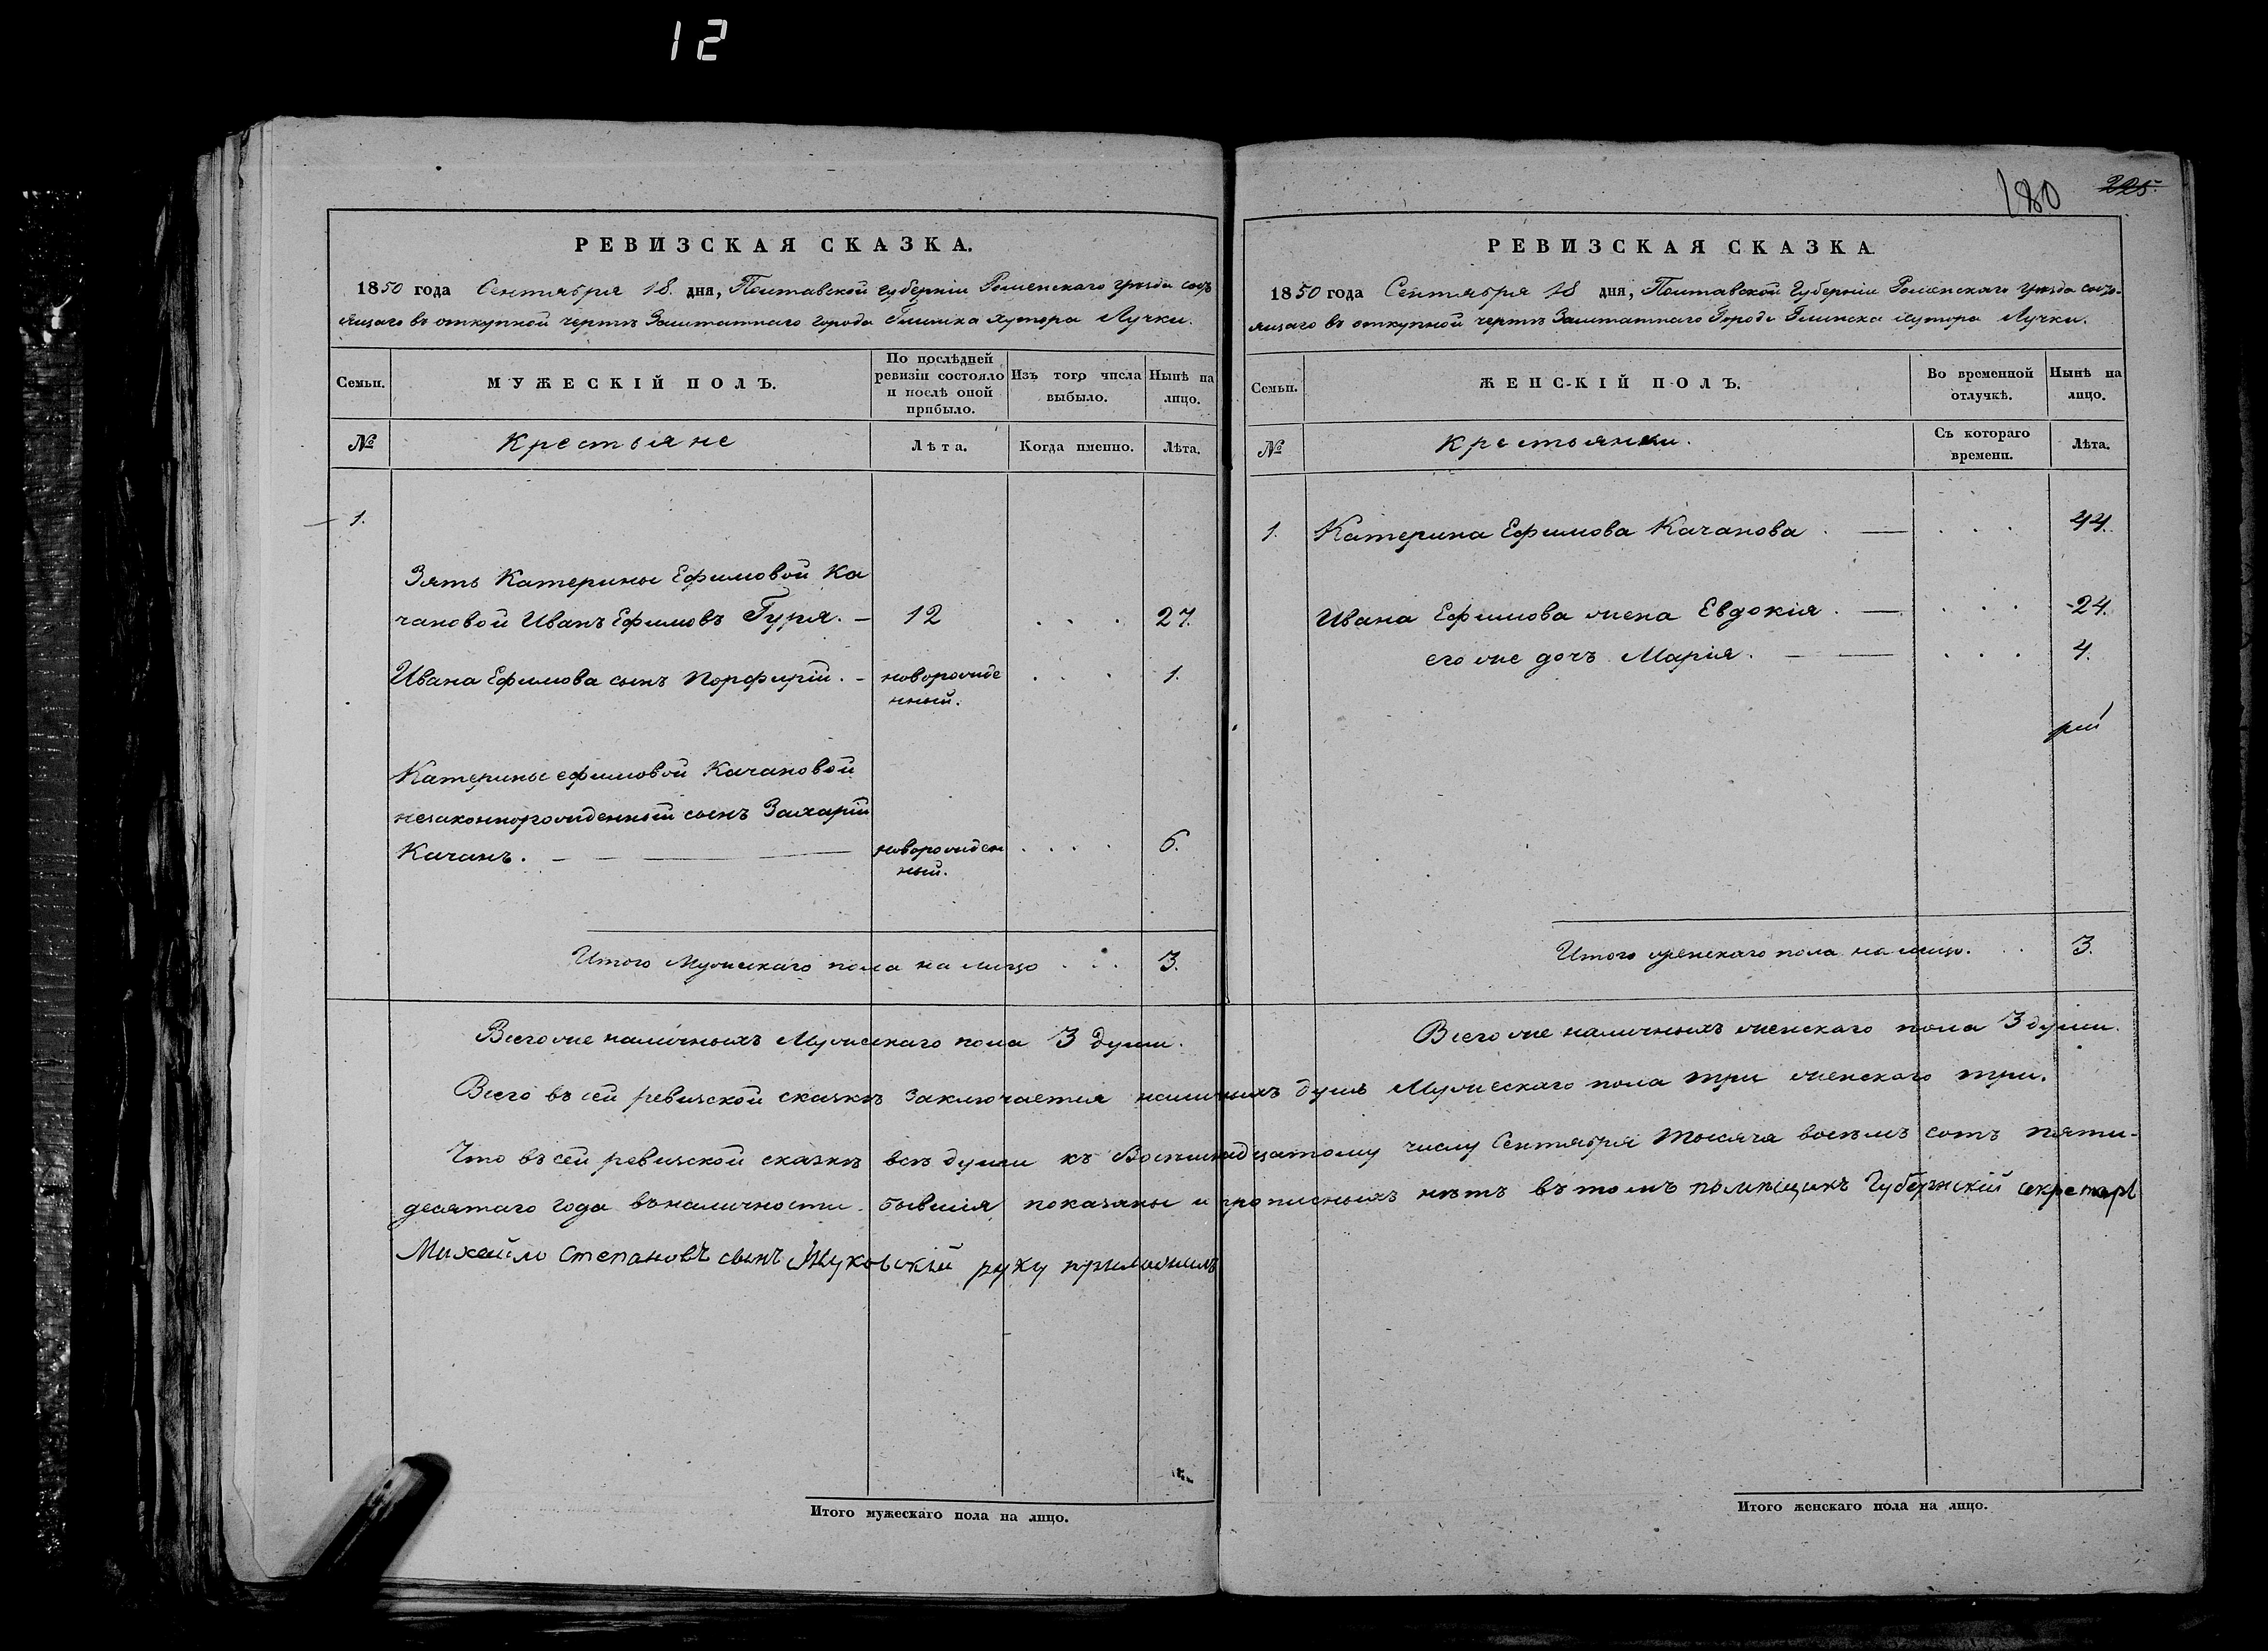 12
180 225.
РЕВИЗСКАЯ СКАЗКА.
1850 года Сентября 18. дня, Полтавской губерніи Роменскаго уѣзда сост
ящаго въ откупной чертѣ Заштатнаго города Глинска хутора Лучки.
Семьи.
МУЖЕСКІЙ ПОЛЪ.
По послѣдней
ревизіи состояло
и послѣ оной
прибыло.
Изъ того числа
выбыло.
Нынѣ на
лицо.
№
Крестьяне
Лѣта.
Когда именно.
Лѣта.
1.
Зять Катерины Ефимовой Ка
чановой Иванъ Ефимовъ Гуря. 12 . . . 27.
Ивана Ефимова сынъ Порфирій. новорожде . . . 1.
нный.
Катерины ефимовой Качановой
незаконнорожденный сынъ Захарій
Качанъ. новорожден . . . . 6.
ный.
Итого Мужескаго пола на лицо . . . 3.
Всего же наличныхъ Мужескаго пола 3 души.
РЕВИЗСКАЯ СКАЗКА
1850 года Сентября 18 дня, Полтавской Губерніи Роменскаго уѣзда состо-
ящаго въ откупной чертѣ Заштатнаго Города Глинска хутора Лучки.
Семьи.
ЖЕНСКІЙ ПОЛЪ.
Во временной
отлучкѣ.
Нынѣ на
лицо.
№
Крестьянки.
Съ котораго
времени.
Лѣта.
1. Катерина Ефимова Качанова . . . . 44.
Ивана Ефимова жена Евдокія . . . . 24.
его же дочь Марія. . . . 4.
Итого женскаго пола на лицо. . 3.
Всего же наличныхъ женскаго пола 3 души.
Всего въ сей ревизской сказкѣ заключается наличныхъ душъ Мужескаго пола три женскаго три.
Что въ сей ревизской сказкѣ всѣ души къ Восемнадцатому числу Сентября тысяча восемь сотъ пяти-
десятаго года въ наличности бывшія показаны и прописныхъ нѣтъ въ томъ помѣщикъ Губернскій секретарь
Михайло Степановъ сынъ Жуковскій руку приложилъ
Итого мужескаго пола на лицо.
Итого женскаго пола на лицо.